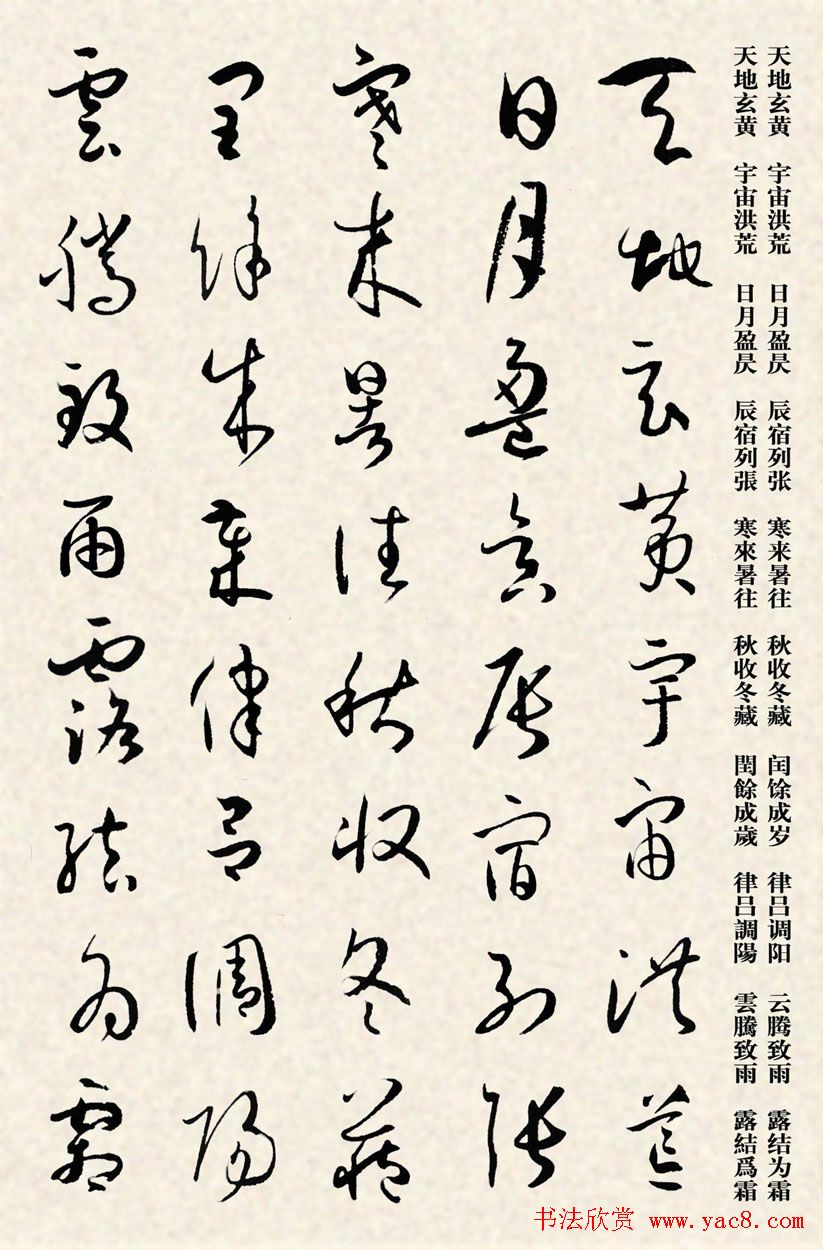 天地玄黄 宇宙洪荒 日月盈昃 辰宿列张 寒来暑往 秋收冬藏 闰馀成岁 律吕调阳 云腾致雨 露结为霜
天地玄黄 宇宙洪荒 日月盈昃 辰宿列張 寒來暑往 秋收冬藏 閏餘成歲 律吕調陽 雲騰致雨 露結爲霜
天地玄黄宇宙洪荒
日月盈昃辰宿列張
寒来暑往秋收冬藏
閏餘成歲律吕調陽
雲騰致雨露結为霜
书法欣赏 www.yac8.com